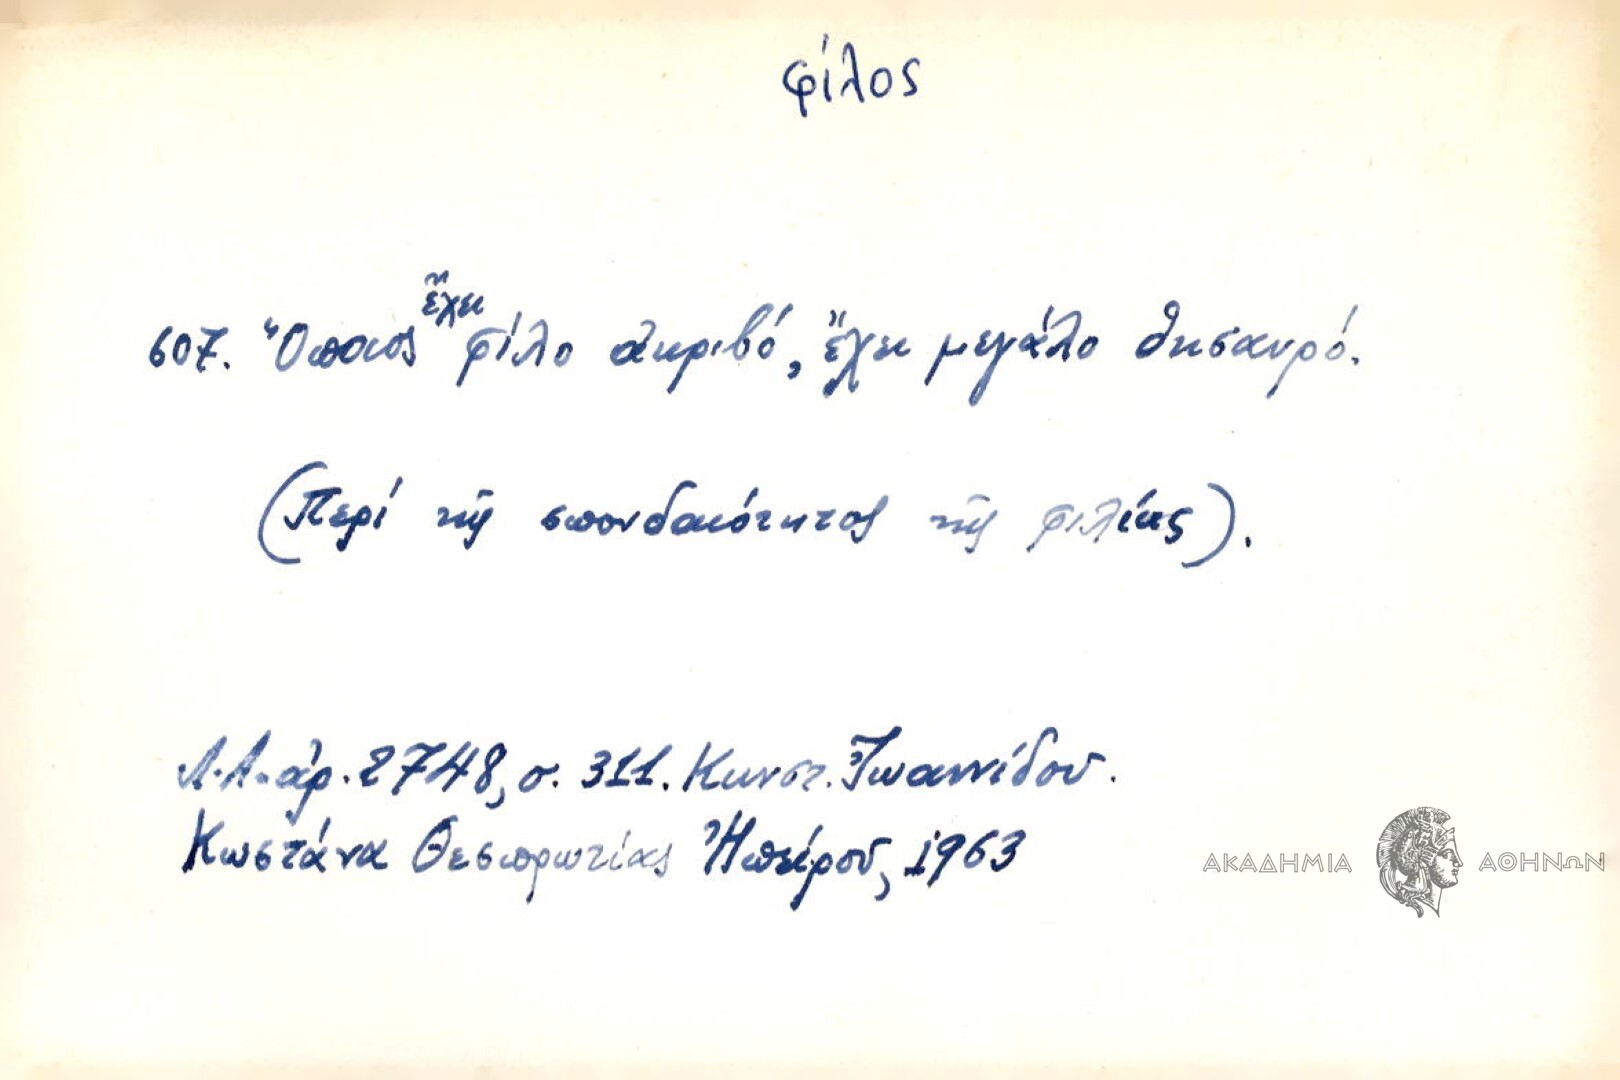 φίλος
607. Ὅποιος ἔχει φίλο ἀκριβό, ἔχει μεγάλο θησαυρό.
(Περί τῆς σπουδαιότητος τῆς φιλίας).
Λ.Α. ἀρ. 2748, σ. 311. Κωνστ. Ἰωαννίδου.
Κωστάνα Θεσπρωτίας Ἠπείρου, 1963
ΑΚΑΔΗΜΙΑ ΑΘΗΝΩΝ